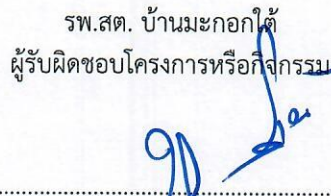 รพ.สต. บ้านมะกอกใต้
ผู้รับผิดชอบโครงการหรือกิจกรรม